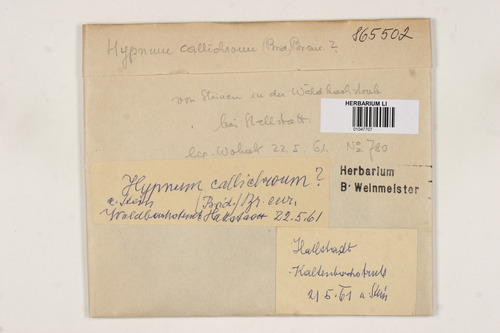 865502
Hypnum callichroum (Brid) Br. eur. ?
von Steinen in der Waldbachstrub
bei Hallstatt
22.5.61 No 780
HERBARIUM LI
01047707
Herbarium
B. Weinmeister
Hypnum callichroum ?
a. Stein /Brid./ Br. eur.
Hallstatt 22.5.61
Hallstadt
21 5. 61 a. Stein